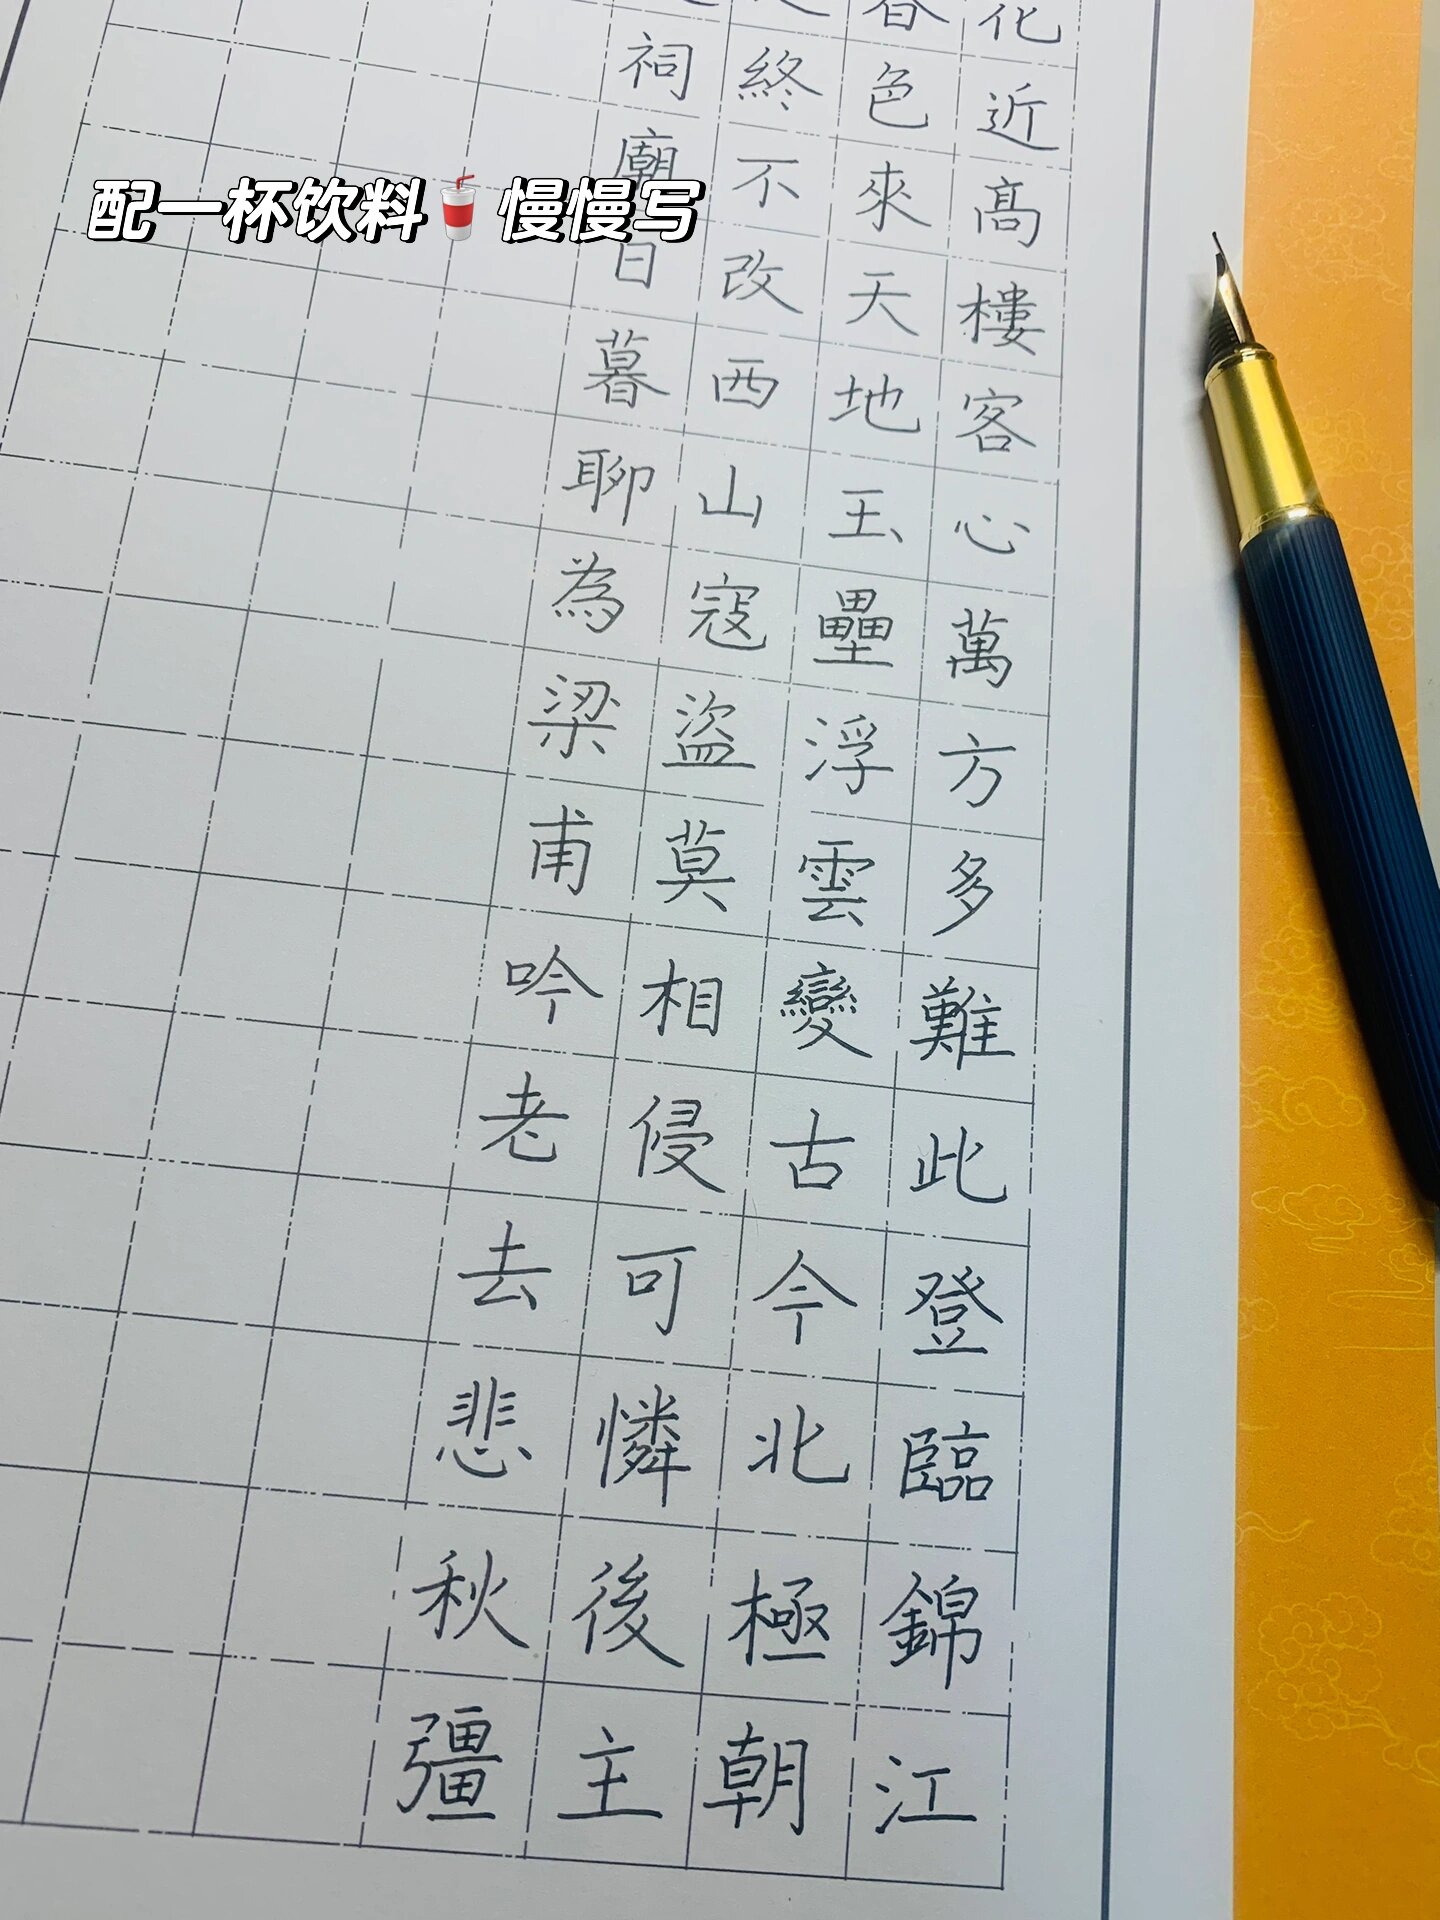 配一杯饮料🥤慢慢写
花近高樓客心萬方多難此登臨錦江
春色來天地玉壘浮雲變古今北極朝
終不改西山寇盜莫相侵可憐後主
祠廟日暮聊為梁甫吟老去悲秋彊